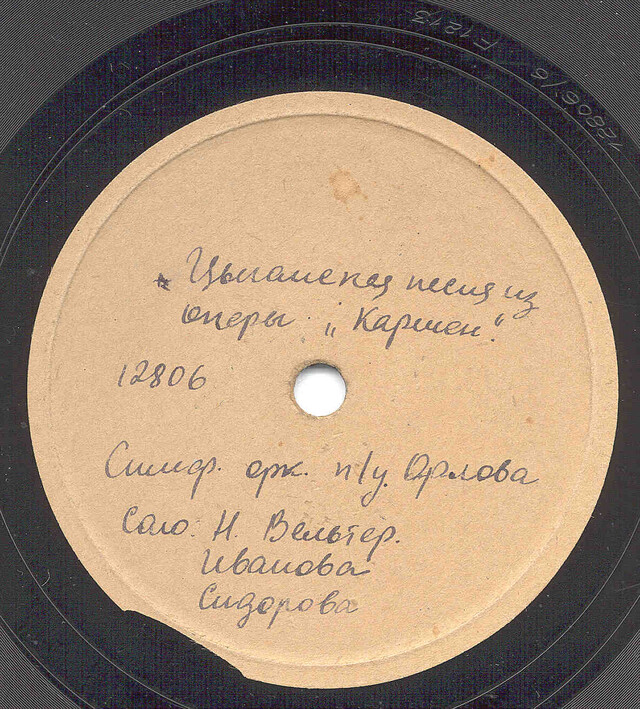 Цыганская песня из
оперы „Кармен."
12806
Симф. орк. п/у. Орлова
Соло Н. Вельтер.
Иванова
Сидорова
12806/6 F1213